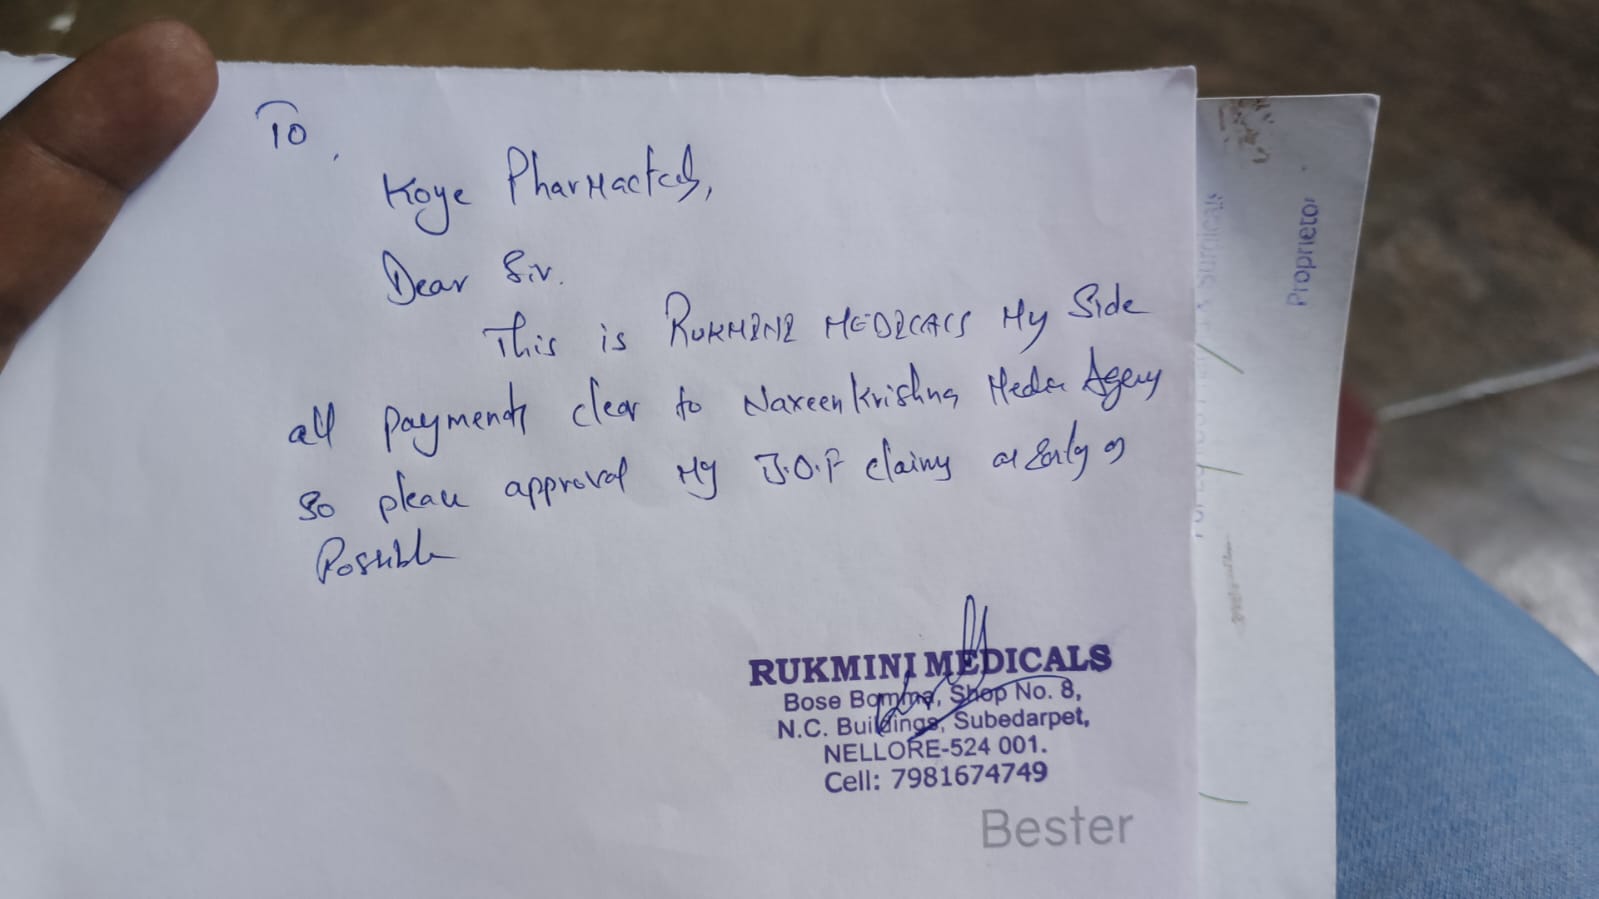 To,
Koye Pharmacteds,
Dear Sir.
This is RUKMINI MEDICALS My Side
all payments clear to Naveen Krishna Agency
So please approval My claims as Early as
Possible
RUKMINI MEDICALS
Bose Bomma, Shop No. 8,
N.C. Buildings, Subedarpet,
NELLORE-524 001.
Cell: 7981674749
Bester
Proprietor